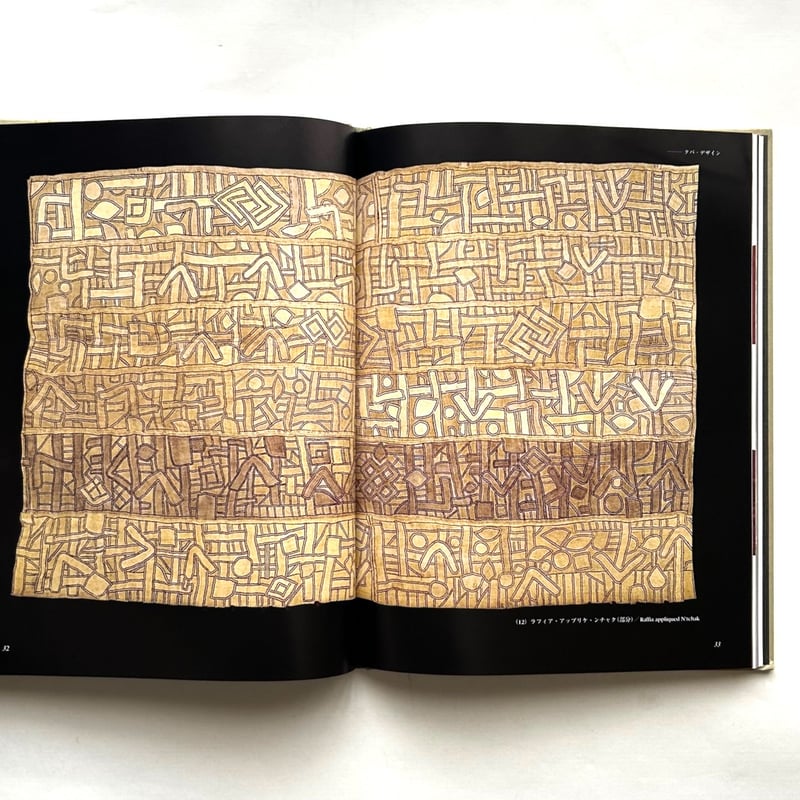 クバ・デザイン
(12) ラフィア・アップリケ・ンチャク(部分)／Raffia appliqued N'tchak
32
33